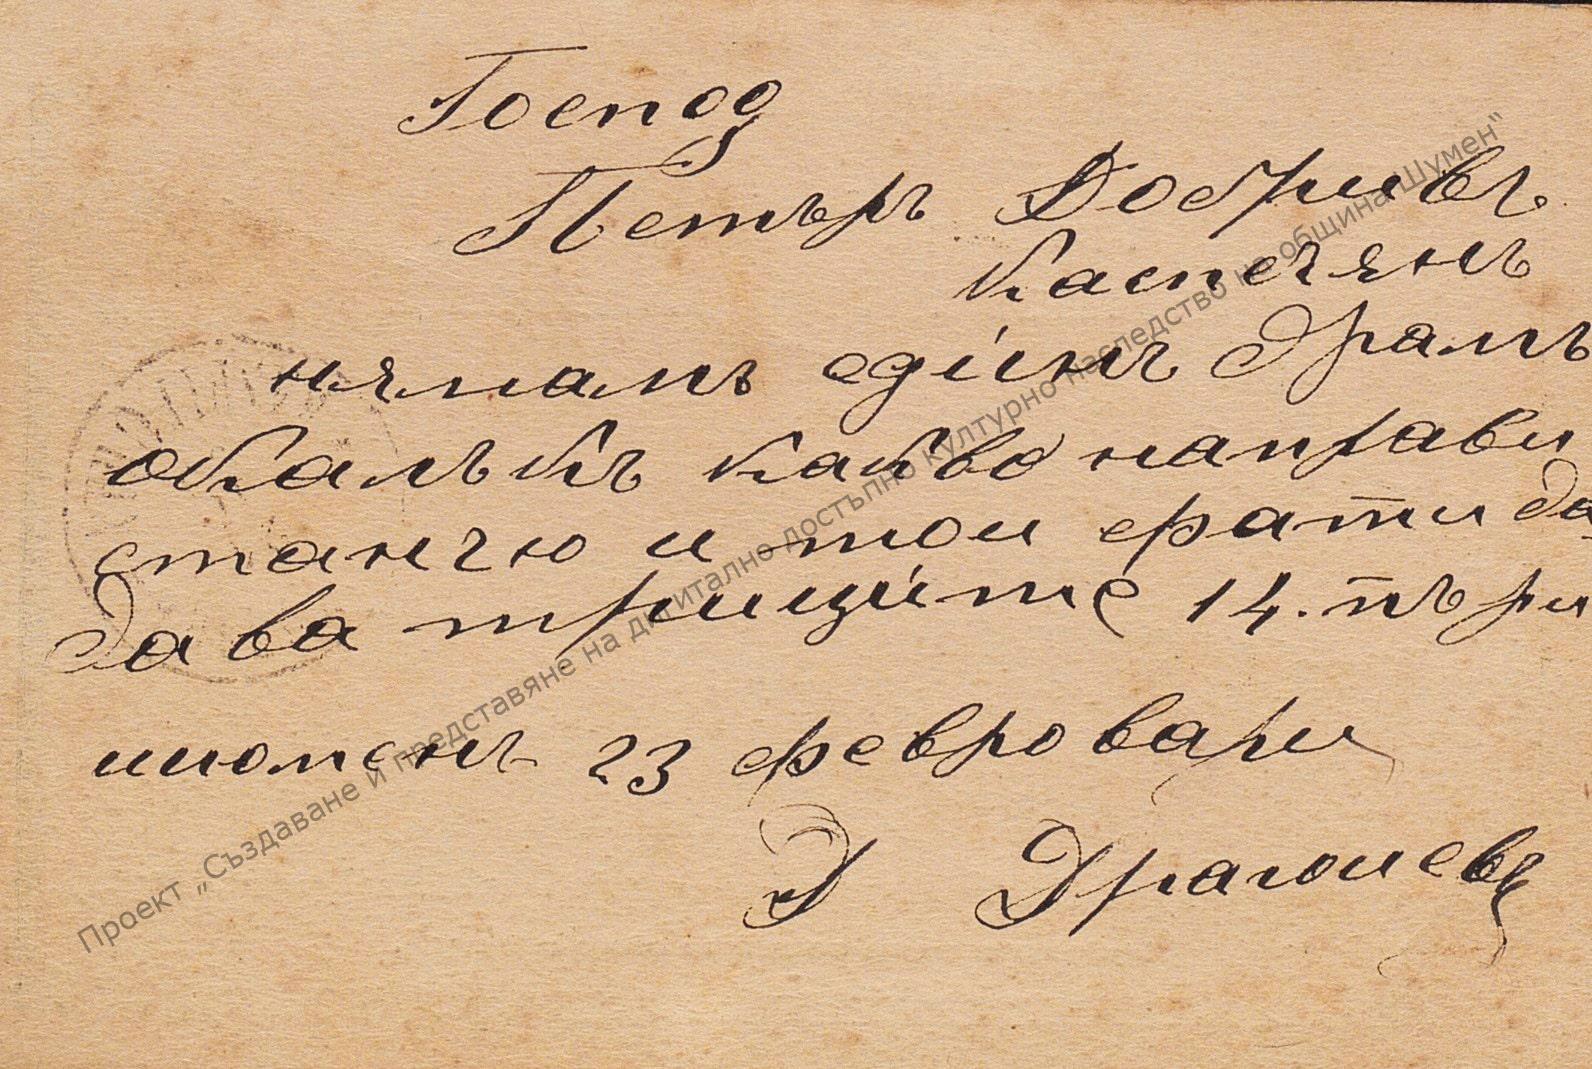 Господ
Петъръ Добриевъ
Каспечянъ
нямамъ единъ драмъ
окалъкъ какво направи
станчю и тои фрати да
дава трициите 14. пъри
шюменъ 23 февровари
Д Драгоиевъ
Проект „Създаване и представяне на дигитално достъпно културно наследство на община Шумен“